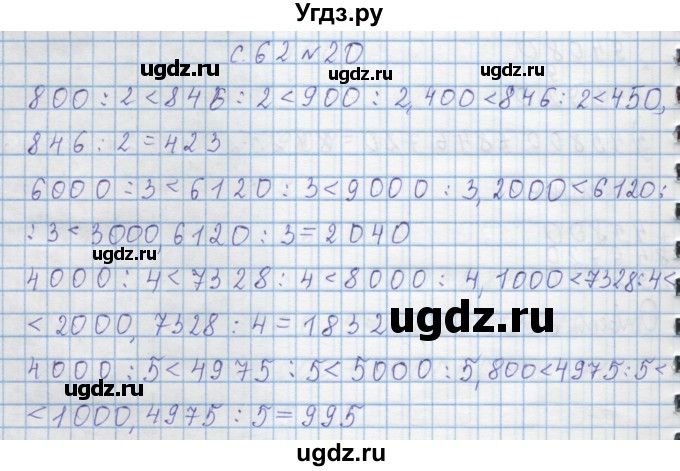 Угдз.ру
с. 62 №20
ugdz.ru ugdz.ru
800 : 2 < 846 : 2 < 900 : 2, 400 < 846 : 2 < 450,
846 : 2 = 423
6000 : 3 < 6120 : 3 < 9000 : 3, 2000 < 6120 :
ugdz.ru ugdz.ru
: 3 < 3000, 6120 : 3 = 2040
4000 : 4 < 7328 : 4 < 8000 : 4, 1000 < 7328 : 4 <
< 2000, 7328 : 4 = 1832
ugdz.ru
4000 : 5 < 4975 : 5 < 5000 : 5, 800 < 4975 : 5 <
ugdz.ru ugdz.ru
< 1000, 4975 : 5 = 995
ugdz.ru